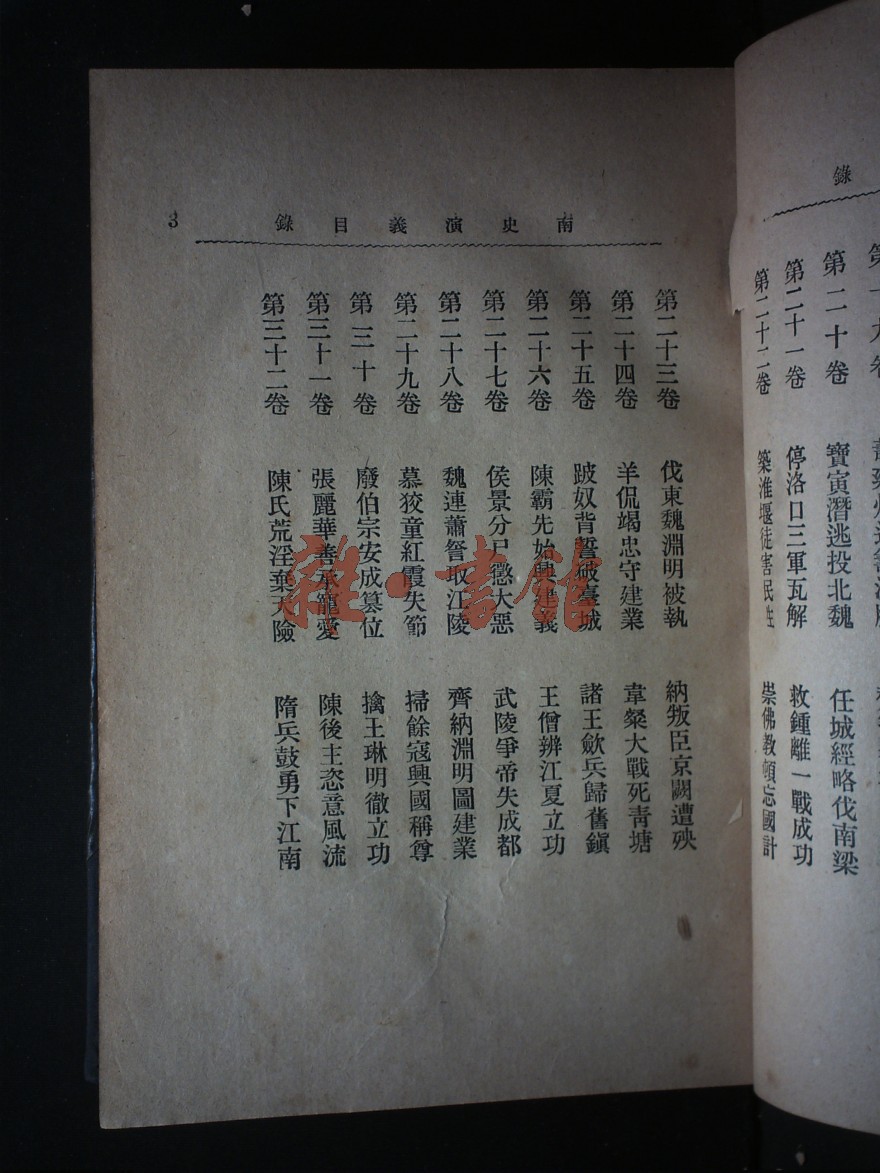 錄
第二十卷 寶寅潛逃投北魏 任城經略伐南梁
第二十一卷 停洛口三軍瓦解 救鍾離一戰成功
第二十二卷 築淮堰徒害民生 崇佛教頓忘國計
南史演義目錄
3
第二十三卷 伐東魏淵明被執 納叛臣京闕遭殃
第二十四卷 羊侃竭忠守建業 韋粲大戰死青塘
第二十五卷 跛奴背誓破臺城 諸王斂兵歸舊鎮
第二十六卷 陳霸先始興建義 王僧辨江夏立功
第二十七卷 侯景分尸懲大惡 武陵爭帝失成都
第二十八卷 魏連蕭詧取江陵 齊納淵明圖建業
第二十九卷 慕狡童紅霞失節 掃餘寇興國稱尊
第三十卷 廢伯宗安成篡位 擒王琳明徹立功
第三十一卷 張麗華善承寵愛 陳後主恣意風流
第三十二卷 陳氏荒淫棄天險 隋兵鼓勇下江南
雜·書館